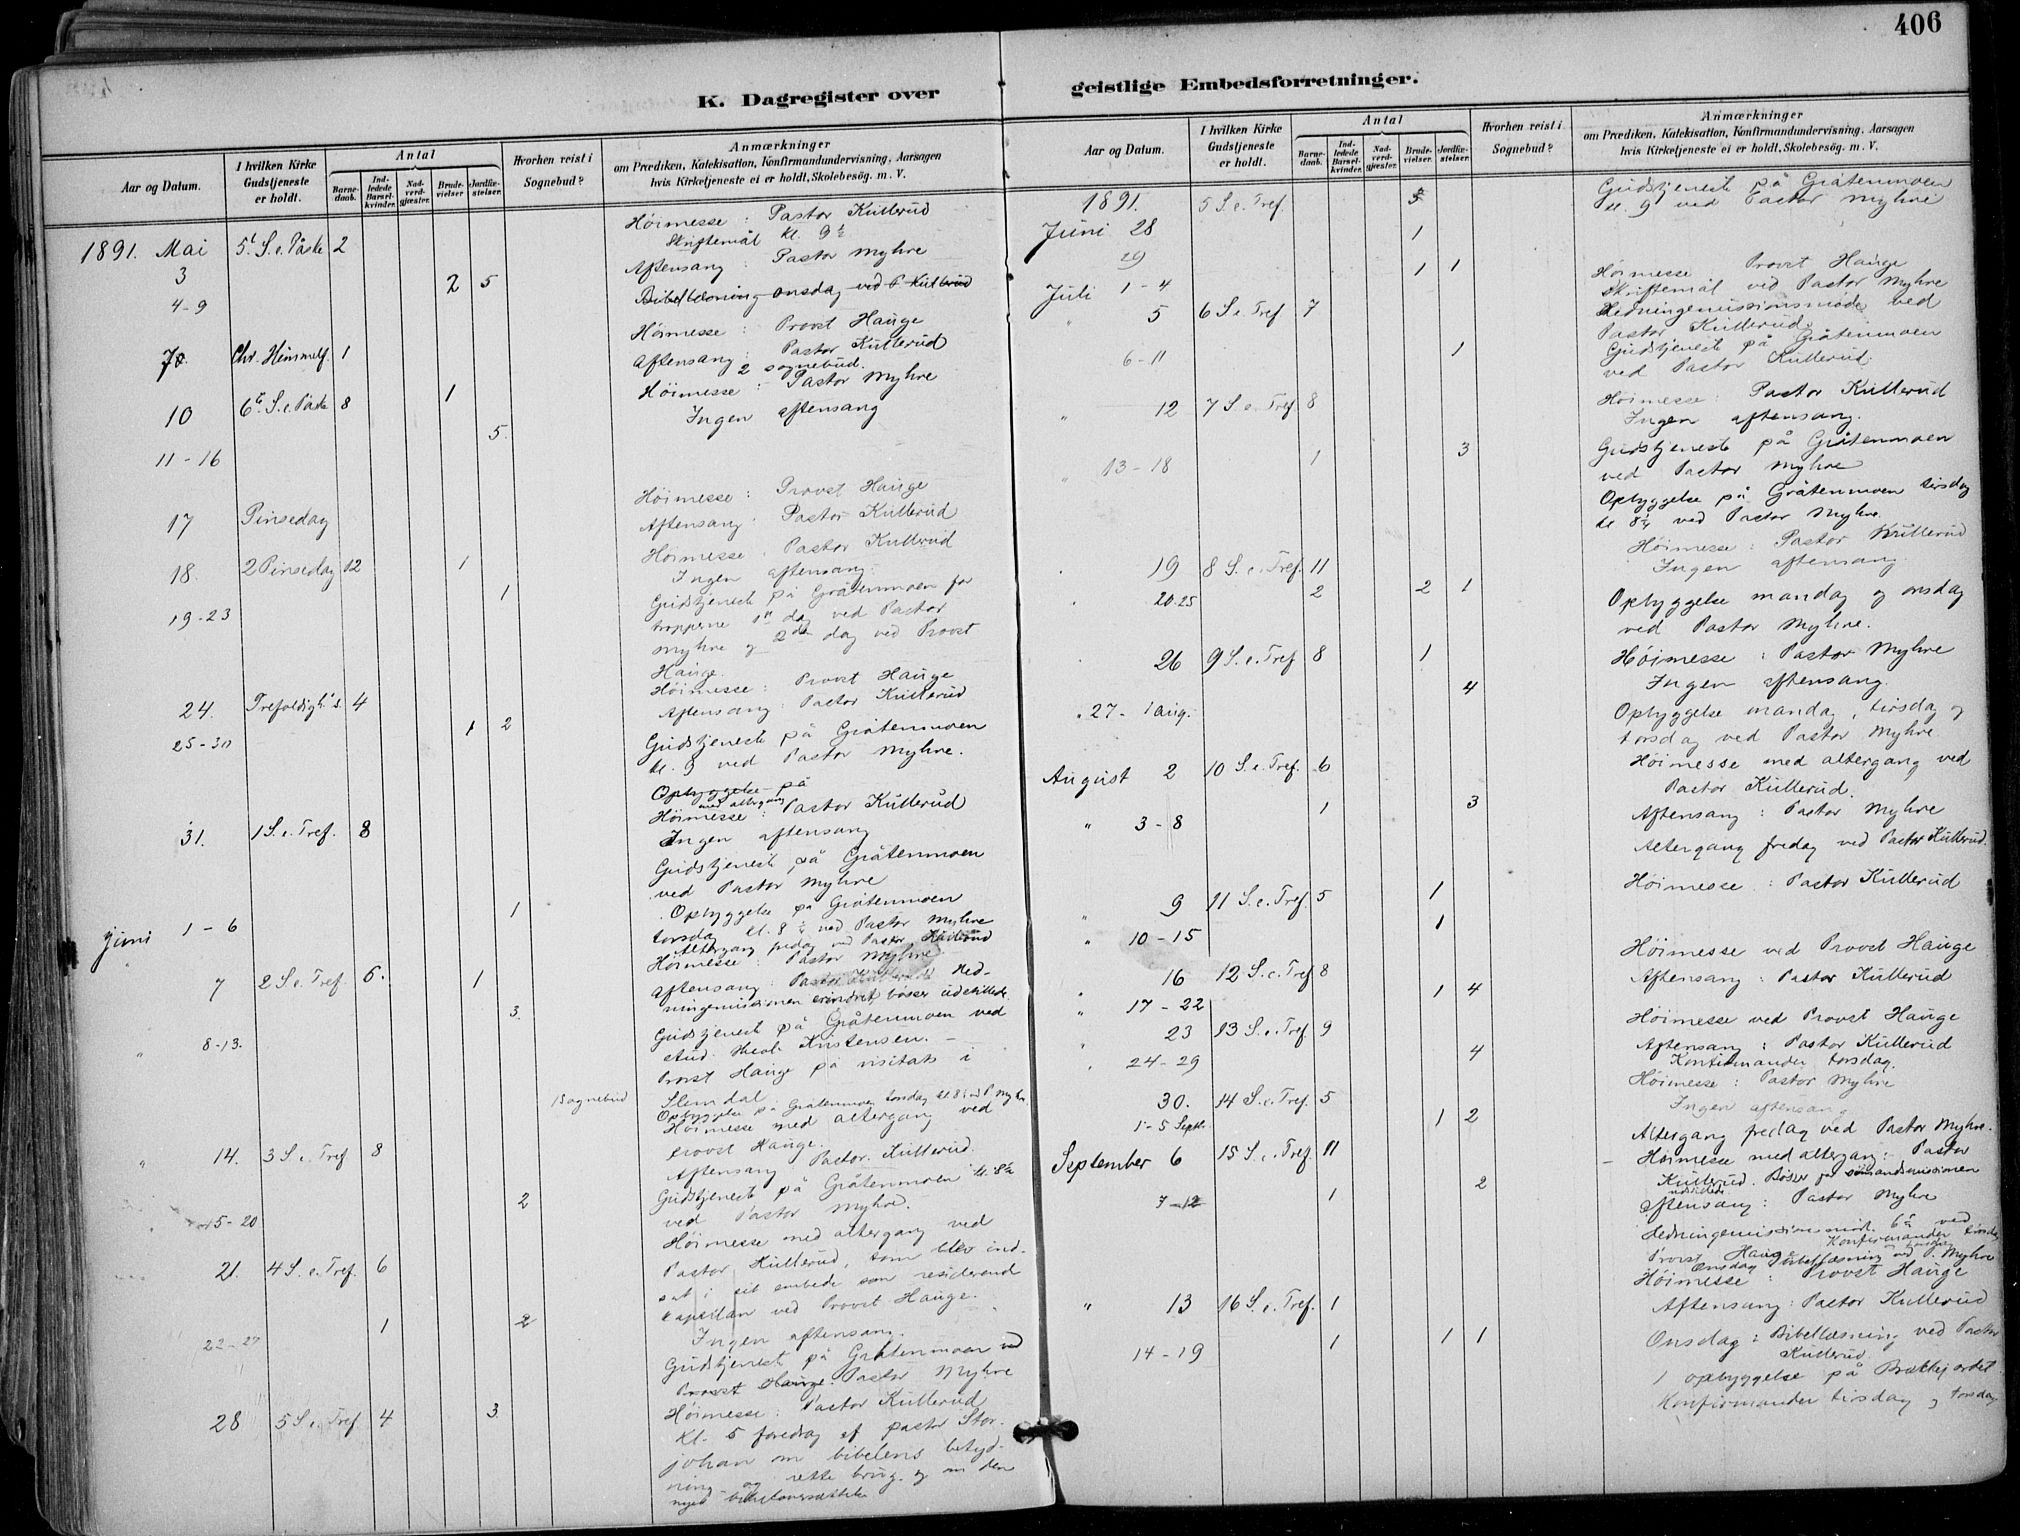 406
K. Dagregister over
geistlige Embedsforretninger.
Aar og Datum.
I hvilken Kirke Gudstjeneste er holdt.
Antal
Barne-daab.
Ind-ledede Barsel-kvinder.
Nad-verd-gjæster.
Brude-vielser
Jordfæ-stelser.
Hvorhen reist i Sognebud?
Anmærkninger
om Prædiken, Katekisation, Konfirmandundervisning, Aarsagen
hvis Kirketjeneste ei er holdt, Skolebesøg. m. V.
Høimesse: Pastor Kullerud
Skriftemål kl. 9½
1891. Mai 3 5t S. e. Påske 2
Aftensang: Pastor Myhre
4-9 2 5
Bibellæsning onsdag ved P. Kullerud
Høimesse: Provst Hauge
7. Chr. Himmelf. 1
Aftensang: Pastor Kullerud
2 sognebud.
10 6te S. e. Påske 8 1
Høimesse: Pastor Myhre
Ingen aftensang
11-16 5.
Høimesse: Provst Hauge
17 Pinsedag
Aftensang: Pastor Kullerud
Høimesse: Pastor Kullerud
18. 2 Pinsedag 12 1
Ingen aftensang.
19-23 1
Gudstjeneste på Gråtenmoen for
tropperne 1ste dag ved Pastor
Myhre og 2den dag ved Provst
Hauge.
Høimesse: Provst Hauge
24. Trefoldigh.s. 4
Aftensang: Pastor Kullerud
25-30 1 2
Gudstjeneste på Gråtenmoen
kl. 9 ved Pastor Myhre.
Opbyggelse på
med altergang
Høimesse: Pastor Kullerud
31. 1 S. e. Tref. 8
Ingen aftensang
Gudstjeneste på Gråtenmoen
ved Pastor Myhre
Juni 1-6 1
Opbyggelse på Gråtenmoen
torsdag kl. 8½ ved Pastor Myhre
Altergang fredag ved Pastor Kullerud
Høimesse: Pastor Myhre
" 7 2 S. e. Tref. 6. 1
Aftensang: Pastor Kullerud Hed-
ningemissionen erindret, bøsser udstillede.
3.
" 8-13.
Gudstjeneste på Gråtenmoen ved
stud. theol. Kristensen. –
Provst Hauge på visitats i
1 Sognebud
Slemdal.
Opbyggelse på Gråtenmoen torsdag kl. 8½ ved P. Myhre
Høimesse med altergang ved
provst Hauge.
" 14. 3 S. e. Tref 8
Aftensang Pastor Kullerud.
15-20 2
Gudstjeneste på Gråtenmoen kl. 8½
ved Pastor Myhre.
Høimesse med altergang ved
21. 4 S. e. Tref. 6
Pastor Kullerud, som blev ind-
sat i sit embede som residerende
kapellan ved Provst Hauge.
22-27 1 2
Ingen aftensang.
Gudstjeneste på Gråtenmoen ved
Provst Hauge. Pastor Myhre
28 5 S. e. Tref. 4 3
Høimesse: Pastor Kullerud
Kl. 5 foredrag af pastor Stor-
johan om bibelens betyd-
ning og rette brug og om den
nye bibeloversættelse
Aar og Datum.
I hvilken Kirke Gudstjeneste er holdt.
Antal
Barne-daab.
Ind-ledede Barsel-kvinder.
Nad-verd-gjæster.
Brude-vielser.
Jordfæ-stelser.
Hvorhen reist i Sognebud?
Anmærkninger
om Prædiken, Katekisation, Konfirmandundervisning, Aarsagen
hvis Kirketjeneste ei er holdt, Skolebesøg. m. V.
1891. 5 S. e. Tref.
Gudstjeneste på Gråtenmoen
kl. 9 ved Pastor Myhre
Juni 28 1
29 1 1
Juli 1-4
Høimesse Provst Hauge
Skriftemål ved Pastor Myhre
" 5 6 S. e. Tref 7
Hedningemissionsmøde ved
Pastor Kullerud.
6-11 1
Gudstjeneste på Gråtenmoen
ved Pastor Kullerud.
" 12 7 S. e. Tref. 8
Høimesse: Pastor Kullerud
Ingen aftensang.
" 13-18 1 3
Gudstjeneste på Gråtenmoen
ved Pastor Myhre
Opbyggelse på Gråtenmoen tirsdag
kl 8½ ved Pastor Myhre.
Høimesse: Pastor Kullerud
19 8 S. e. Tref. 11
Ingen aftensang
20-25 2 2 1
Opbyggelse mandag og onsdag
ved Pastor Myhre.
26 9 S. e. Tref 8 1
Høimesse: Pastor Myhre
Ingen aftensang.
" 27 - 1 Aug. 4
Opbyggelse mandag, tirsdag og
torsdag ved Pastor Myhre
August 2 10 S. e. Tref. 6
Høimesse med altergang ved
Pastor Kullerud.
" 3-8 1 3
Aftensang: Pastor Myhre
Altergang fredag ved Pastor Kullerud.
" 9 11 S. e. Tref. 5 1
Høimesse: Pastor Kullerud
" 10-15 1
Høimesse ved Provst Hauge
" 16 12 S. e. Tref 8
Aftensang: Pastor Kullerud
" 17-22 1 4
Høimesse ved Provst Hauge
" 23 13 S. e. Tref. 9
Aftensang: Pastor Kullerud
" 24-29 4
Konfirmander torsdag.
Høimesse: Pastor Myhre
30. 14 S. e. Tref. 5
Ingen aftensang
1-5 Septb. 1 2
Altergang fredag ved Pastor Myhre.
September 6 15 S. e. Tref. 11
Høimesse med altergang: Pastor
Kullerud. Bøsser for sømandsmissionen
udstillede
7-12 1 2
Aftensang: Pastor Myhre
Hedningemissionsmøde ved
Provst Hauge Konfirmander tirsdag
Onsdag Bibellæsning ved P. Myhre
Høimesse: Provst Hauge
" 13 16 S. e. Tref. 1
Aftensang: Pastor Kullerud
14-19 1 1 1
Onsdag: Bibellæsning ved Pastor
Kullerud
1 opbyggelse på Brækkejordet
Konfirmander tirsdag og torsdag